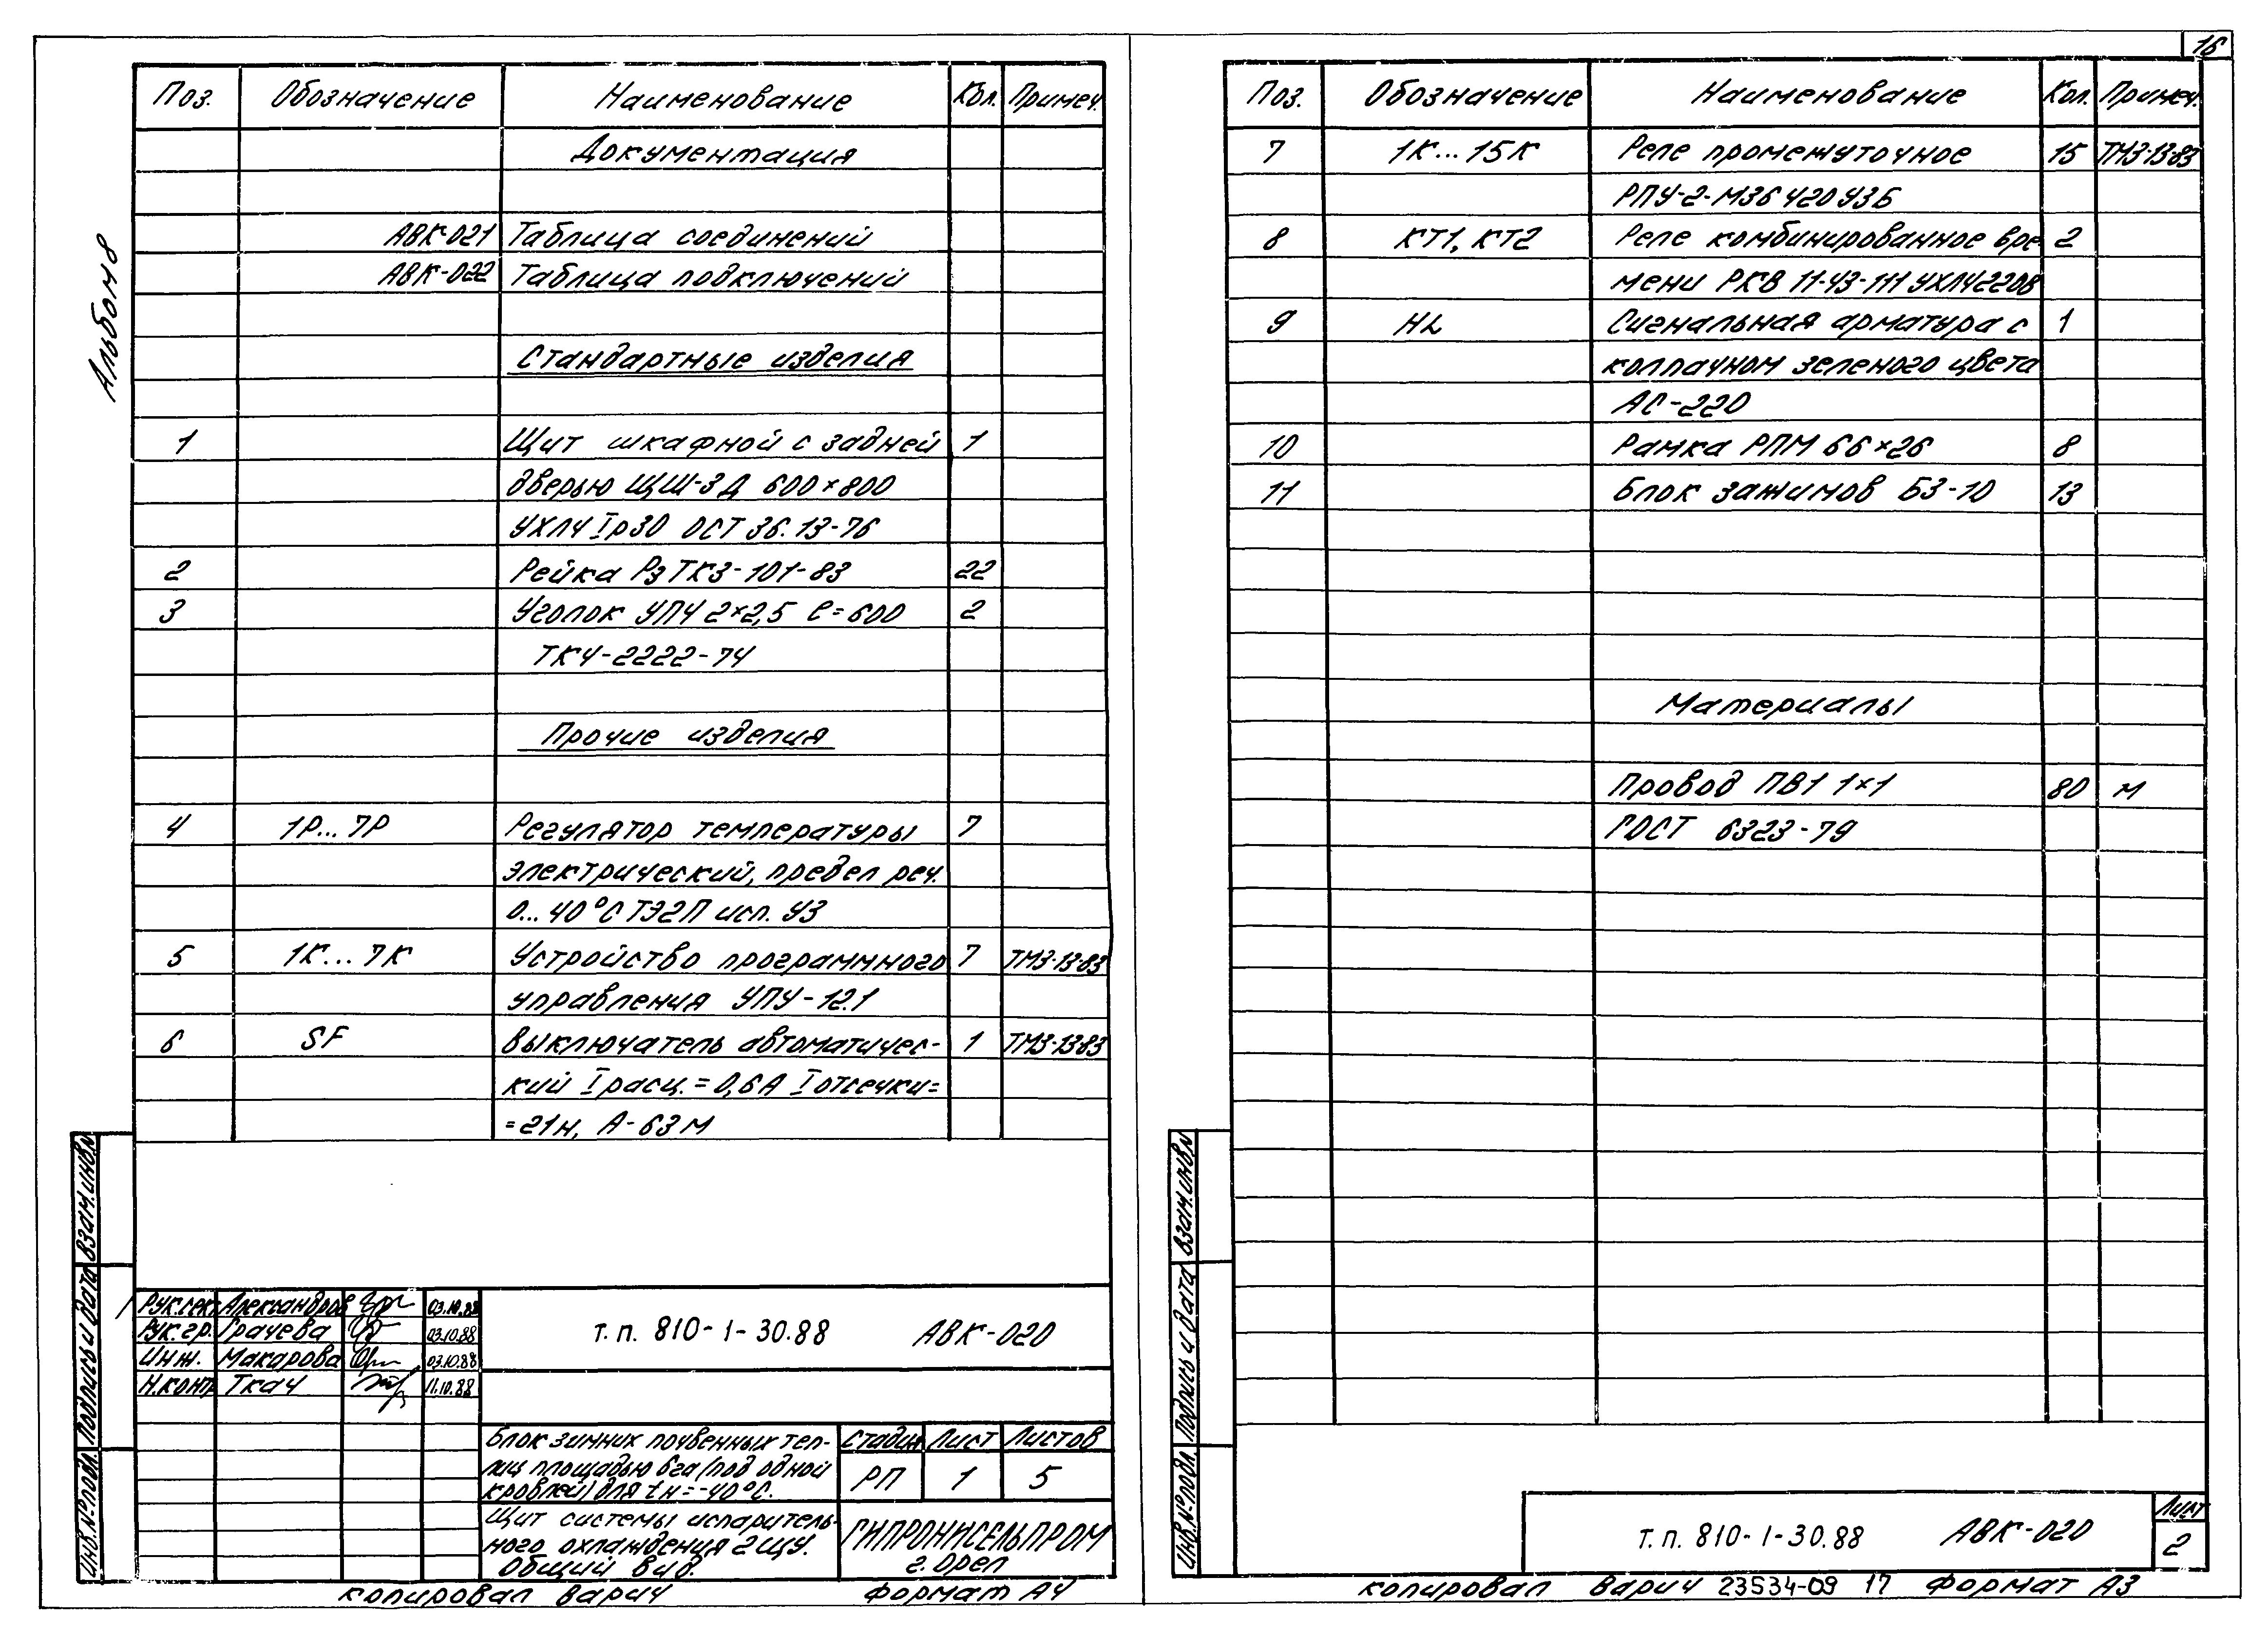 16
Альбом 8
Поз. Обозначение Наименование Кол. Примеч.
Документация
АВК-021 Таблица соединений
АВК-022 Таблица подключений
Стандартные изделия
1 Щит шкафной с задней 1
дверью ЩШ-ЗД 600×800
УХЛ4 Iр30 ОСТ 36.13-76
2 Рейка Рз ТК3-101-83 22
3 Уголок УПЧ 2×2,5 ℓ=600 2
ТК4-2222-74
Прочие изделия
4 1Р... 7Р Регулятор температуры 7
электрический, предел рег.
0... 40°С ТЭ2П исп. У3
5 1К... 7К Устройство программного 7 ТМ3-13-83
управления УПУ-12.1
6 SF Выключатель автоматичес- 1 ТМ3-13-83
кий Iрасц. = 0,6А Iотсечки=
=21н, А-63М
Взам. инв. №
Подпись и дата
Инв. № подл.
Рук. сект. Александров 03.10.88
Рук. гр. Грачева 03.10.88
Инж. Макарова 03.10.88
Н.контр Ткач 11.10.88
т.п. 810-1-30.88 АВК-020
Блок зимних почвенных теп-
лиц площадью 6га (под одной
кровлей) для tн=-40°С.
Стадия Лист Листов
РП 1 5
Щит системы испаритель-
ного охлаждения 2ЩУ.
Общий вид.
ГИПРОНИСЕЛЬПРОМ
г. Орел
Копировал Варич Формат А4
Поз. Обозначение Наименование Кол. Примеч.
7 1К... 15К Реле промежуточное 15 ТМ3-13-83
РПУ-2-М36420У3Б
8 КТ1, КТ2 Реле комбинированное вре- 2
мени РКВ 11-43-111 УХЛ4 220В
9 HL Сигнальная арматура с 1
колпачком зеленого цвета
АС-220
10 Рамка РПМ 66×26 8
11 Блок зажимов БЗ-10 13
Материалы
Провод ПВ1 1×1 80 м
ГОСТ 6323-79
Взам. инв. №
Подпись и дата
Инв. № подл.
т.п. 810-1-30.88 АВК-020
Лист
2
Копировал Варич 23534-09 17 Формат А3